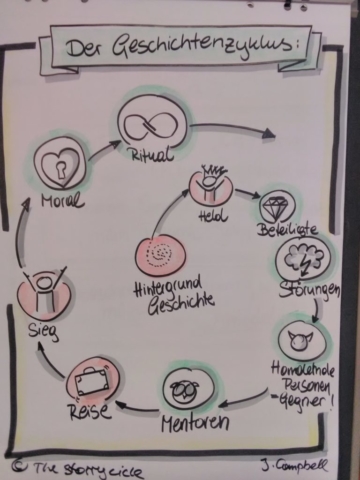 Der Geschichtenzyklus:
Ritual
Moral
Held
Beteiligte
Hintergrund
Geschichte
Störungen
Sieg
Handelnde
Personen
-Gegner!
Reise
Mentoren
© The storrycircle
J. Campbell